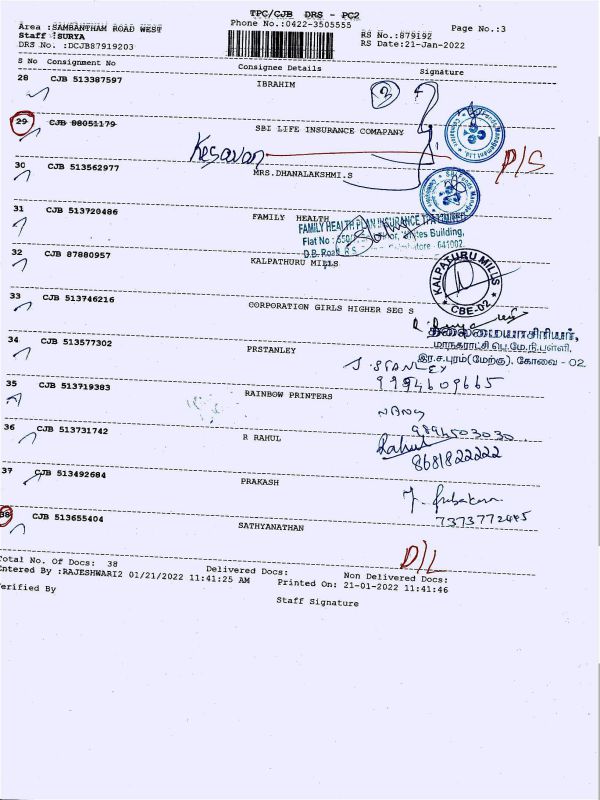 TPC/CJB DRS - PC2
Area :SAMBANTHAM ROAD WEST
Phone No.:0422-3505555
Page No.:3
Staff :SURYA
RS No.:879192
DRS No. :DCJB87919203
RS Date:21-Jan-2022
S No Consignment No Consignee Details Signature
28 CJB 513387597 IBRAHIM
29 CJB 88051179 SBI LIFE INSURANCE COMAPANY
Kesavan
P/S
30 CJB 513562977 MRS.DHANALAKSHMI.S
31 CJB 513720486 FAMILY HEALTH
FAMILY HEALTH PLAN INSURANCE TPA LIMITED
Building,
641002.
32 CJB 87880957 KALPATHURU MILLS
KALPATURU MILLS
CBE-02
33 CJB 513746216 CORPORATION GIRLS HIGHER SEC S
தலைமையாசிரியர்,
மாநகராட்சி பெ.மே.நி.பள்ளி,
இர.ச.புரம்(மேற்கு). கோவை - 02
34 CJB 513577302 PRSTANLEY
J. STANLEY
9994609665
35 CJB 513719383 RAINBOW PRINTERS
9894503030
36 CJB 513731742 R RAHUL
Rahul
8681822222
37 CJB 513492684 PRAKASH
38 CJB 513655404 SATHYANATHAN
D/L
Total No. Of Docs: 38 Delivered Docs: Non Delivered Docs:
Entered By :RAJESHWARI2 01/21/2022 11:41:25 AM Printed On: 21-01-2022 11:41:46
Verified By
Staff Signature